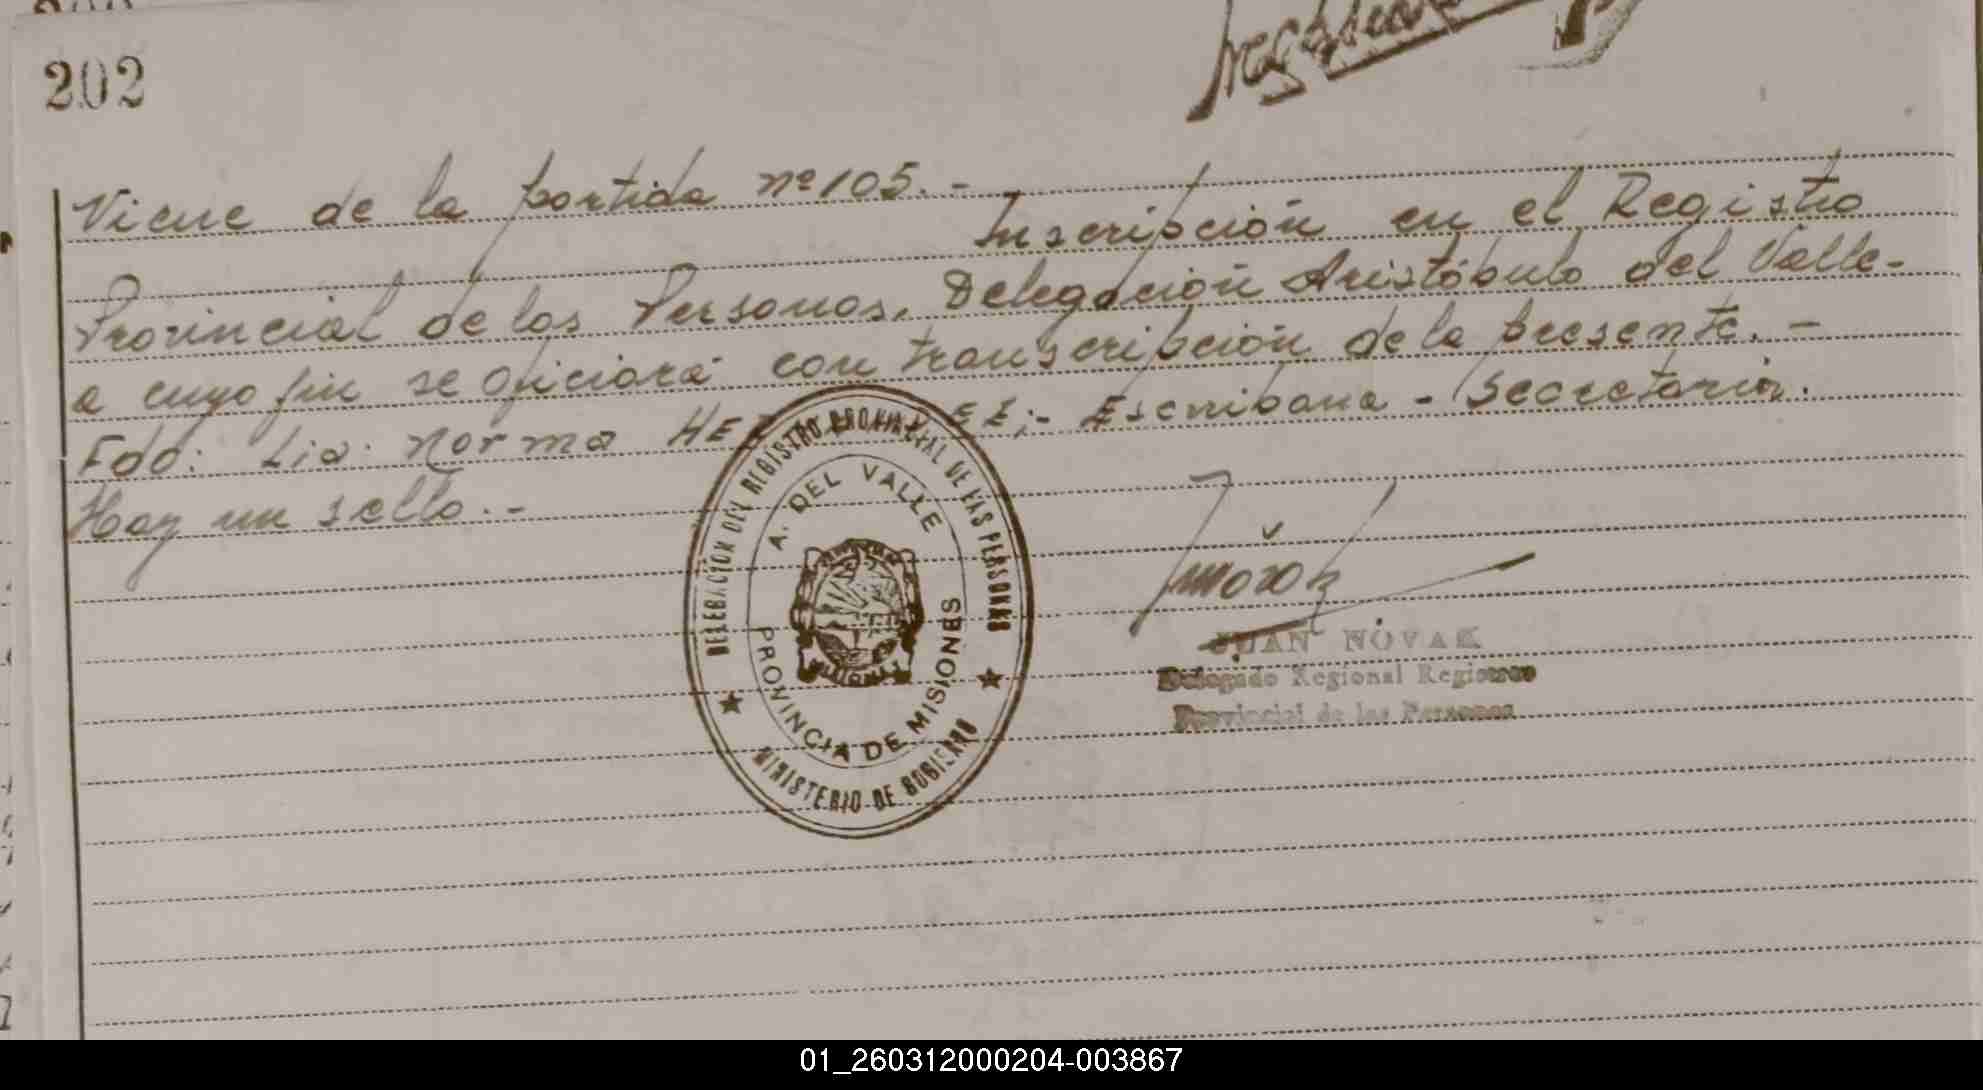 202
Viene de la partida nº 105.-
Inscripción en el Registro
Provincial de las Personas, Delegación Aristóbulo del Valle-
a cuyo fin se oficiará con transcripción de la presente.-
Fdo: Lia. Norma HE EZ;- Escribana - Secretaria.
Hay un sello.-
DELEGACION DEL REGISTRO PROVINCIAL DE LAS PERSONAS
A. DEL VALLE
PROVINCIA DE MISIONES
MINISTERIO DE GOBIERNO
JUAN NOVAK
Delegado Regional Registro
Provincial de las Personas
01_260312000204-003867